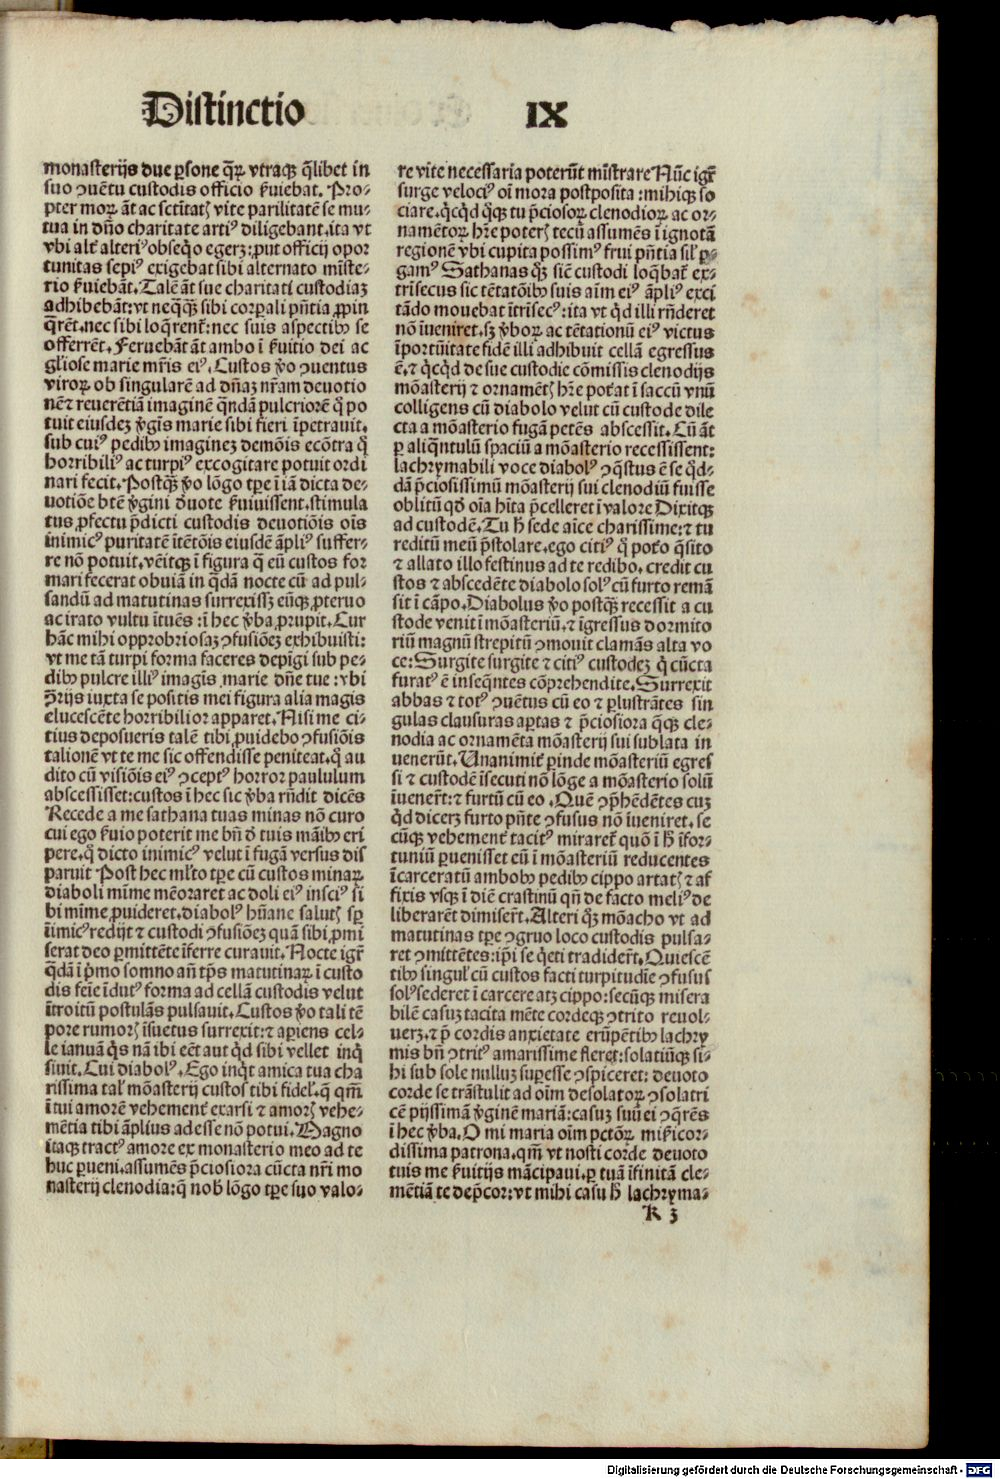 Distinctio IX
monasterijs due ꝑsone q̄ꝝ vtraqꝫ q̄libet in
suo ↄuētu custodis officio ẜuiebat. Pro⸗
pter moꝝ āt ac sctītatꝭ vite parilitatē se mu⸗
tua in dn̄o charitate artiꝰ diligebant.ita vt
vbi alt̓ alteriꝰ obseq̄o egerꝫ:ꝓut officij opor
tunitas sepiꝰ exigebat sibi alternato mīste⸗
rio ẜuiebāt.Talē āt sue charitati custodiaꝫ
adhibebāt:vt neq̄qꝫ sibi corꝑali pn̄tia ꝓpin
q̄rēt.nec sibi loq̄rent̓:nec suis aspectibꝰ se
offerrēt.Feruebāt āt ambo ī ẜuitio dei ac
gl̓iose marie mr̄is eiꝰ.Custos ꝟo ↄuentus
viroꝝ ob singularē ad dn̄aꝫ nr̄am deuotio
nēꝛ reuerētiā imaginē q̄ndā pulcriorē q̄ po
tuit eiusdeꝫ ꝟgīs marie sibi fieri īpetrauit.
sub cuiꝰ pedibꝰ imagineꝫ demōis ecōtra q̄
horribiliꝰ ac turpiꝰ excogitare potuit ordi
nari fecit.Postqꝫ ꝟo lōgo tꝑe ī iā dicta de⸗
uotiōe btē ꝟgini d̓uote ẜuiuissent.stimula
tus ꝓfectu p̄dicti custodis deuotiōis oīs
inimicꝰ puritatē ītētōis eiusdē āpliꝰ suffer⸗
re nō potuit.vēitqꝫ ī figura q̄ eū custos for
mari fecerat obuiā in q̄dā nocte cū ad pul⸗
sandū ad matutinas surrexissꝫ eūqꝫ ꝓteruo
ac irato vultu ītuēs :ī hec ꝟba ꝓrupit.Cur
hāc mihi opprobriosaꝫ ↄfusiōeꝫ exhibuisti:
vt me tā turpi forma faceres depīgi sub pe⸗
dibꝰ pulcre illiꝰ imagīs marie dn̄e tue :vbi
ↄ̄rijs iuxta se positis mei figura alia magis
elucescēte horribilior apparet.Nisi me ci⸗
tius deposueris talē tibi ꝓuidebo ↄfusiōis
talionē vt te me sic offendisse peniteat.q̄ au
dito cū visiōis eiꝰ ↄceptꝰ horror paululum
abscessisset:custos ī hec sic ꝟba rn̄dit dicēs
Recede a me sathana tuas minas nō curo
cui ego ẜuio poterit me bn̄ d̓ tuis māibꝰ eri
pere.q̄ dicto inimicꝰ velut ī fugā versus dis
paruit Post hec ml̓to tꝑe cū custos minaꝝ
diaboli mīme mēoraret ac doli eiꝰ insciꝰ si
bi mīme ꝓuideret.diabolꝰ hūane salutꝭ sꝑ
īimicꝰ redijt ꝛ custodi ↄfusiōeꝫ quā sibi ꝓmi
serat deo ꝑmittēte īferre curauit.Nocte igr̄
q̄dā ī p̄mo somno an̄ tp̄s matutinaꝝ ī custo
dis feīe īdutꝰ forma ad cellā custodis velut
ītroitū postulās pulsauit.Custos ꝟo tali tē
pore rumorꝭ īsuetus surrexit:ꝛ aꝑiens cel⸗
le ianuā q̄s nā ibi eēt aut q̄d sibi vellet inq̄
siuit.Cui diabolꝰ.Ego inq̄t amica tua cha
rissima tal̓ mōasterij custos tibi fidel̓.q̄ qm̄
ī tui amorē vehement̓ exarsi ꝛ amorꝭ vehe⸗
mētia tibi āplius adesse nō potui.Magno
itaqꝫ tractꝰ amore ex monasterio meo ad te
huc ꝑueni.assumēs p̄ciosiora cūcta nr̄i mo
nasterij clenodia:q̄ nobꝭ lōgo tꝑe suo valo⸗
re vite necessaria poterūt mīstrare Nūc igr̄
surge velociꝰ oī mora postposita :mihiqꝫ so
ciare.q̄cq̄d q̄qꝫ tu p̄ciosoꝝ clenodioꝝ ac or⸗
namētoꝝ hr̄e poterꝭ tecū assumēs ī ignotā
regionē vbi cupita possimꝰ frui pn̄tia sil̓ ꝑ⸗
gamꝰ Sathanas q̄ꝫ sic̄ custodi loq̄bat̓ ex⸗
trīsecus sic tētatōibꝰ suis aīm eiꝰ āpliꝰ exci
tādo mouebat ītrīsecꝰ:ita vt q̄d illi rn̄deret
nō īueniret.sꝫ ꝟboꝝ ac tētationū eiꝰ victus
īportūitate fidē illi adhibuit cellā egressus
ē.ꝛ q̄cq̄d de sue custodie cōmissis clenodijs
mōasterij ꝛ ornamētꝭ hr̄e pot̓at ī saccū vnū
colligens cū diabolo velut cū custode dile
cta a mōasterio fugā petēs abscessit.Cū āt
ꝑ aliq̄ntulū spaciū a mōasterio recessissent:
lachrymabili voce diabolꝰ ↄq̄stus ē se q̄d⸗
dā p̄ciosissimū mōasterij sui clenodiū fuisse
oblitū qd̓ oīa hīta p̄celleret ī valore Dixitqꝫ
ad custodē.Tu h̓ sede aīce charissime:ꝛ tu
reditū meū p̄stolare.ego citiꝰ q̄ pot̓o q̄sito
ꝛ allato illo festinus ad te redibo.credit cu
stos ꝛ abscedēte diabolo solꝰ cū furto remā
sit ī cāpo.Diabolus ꝟo postqꝫ recessit a cu
stode venit ī mōasteriū.ꝛ īgressus dormito
riū magnū strepitū ↄmouit clamās alta vo
ce:Surgite surgite ꝛ citiꝰ custodeꝫ q̄ cūcta
furatꝰ ē inseq̄ntes cōprehendite.Surrexit
abbas ꝛ totꝰ ↄuētus cū eo ꝛ ꝑlustrātes sin
gulas clausuras aꝑtas ꝛ p̄ciosiora q̄qꝫ cle⸗
nodia ac ornamēta mōasterij sui sublata in
uenerūt.Unanimit̓ ꝑinde mōasteriū egres
si ꝛ custodē īsecuti nō lōge a mōasterio solū
īuener̄t:ꝛ furtū cū eo .Quē ↄp̄hēdētes cuꝫ
q̄d dicerꝫ furto pn̄te ↄfusus nō īueniret. se
cūqꝫ vehement̓ tacitꝰ miraret̓ quō ī h̓ īfor⸗
tuniū ꝑuenisset eū ī mōasteriū reducentes
īcarceratū ambobꝰ pedibꝰ cippo artatꝭ ꝛ af
fixis vsqꝫ ī diē crastinū qn̄ de facto meliꝰ de
liberarēt dimiser̄t.Alteri q̄ꝫ mōacho vt ad
matutinas tꝑe ↄgruo loco custodis pulsa⸗
ret ↄmittētes:ip̄i se q̄eti tradider̄t.Quiescē
tibꝰ singul̓ cū custos facti turpitudīe ↄfusus
solꝰ sederet ī carcere atꝫ cippo:secūqꝫ misera
bilē casuꝫ tacita mēte cordeqꝫ ↄtrito reuol⸗
uerꝫ.ꝛ p̄ cordis anxietate erūpētibꝰ lachry
mis bn̄ ↄtritꝰ amarissime fleret:solatiūqꝫ si⸗
hi sub sole nulluꝫ suꝑesse ↄspiceret: deuoto
corde se trāstulit ad oīm desolatoꝝ ↄsolatri
cē pijssimā ꝟginē mariā:casuꝫ suū ei ↄq̄rēs
ī hec ꝟba.O mi maria oīm pctōꝝ mīcor⸗
dissima patrona.qm̄ vt nosti corde deuoto
tuis me ẜuitijs mācipaui.ꝑ tuā īfinitā cle⸗
mētiā te dep̄cor:vt mihi casu h̓ lachryma⸗
K 3
Digitalisierung gefördert durch die Deutsche Forschungsgemeinschaft - DFG